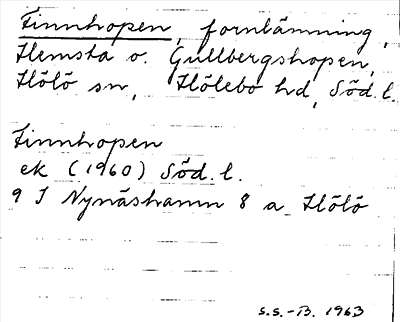 Finnhopen, fornlämning,
Hemsta o. Gullbergshopen,
Hölö sn, Hölebo hd, Söd. l.
Finnhopen
ek (1960) Söd. l.
9 I Nynäshamn 8 a Hölö
S.S.-B. 1963